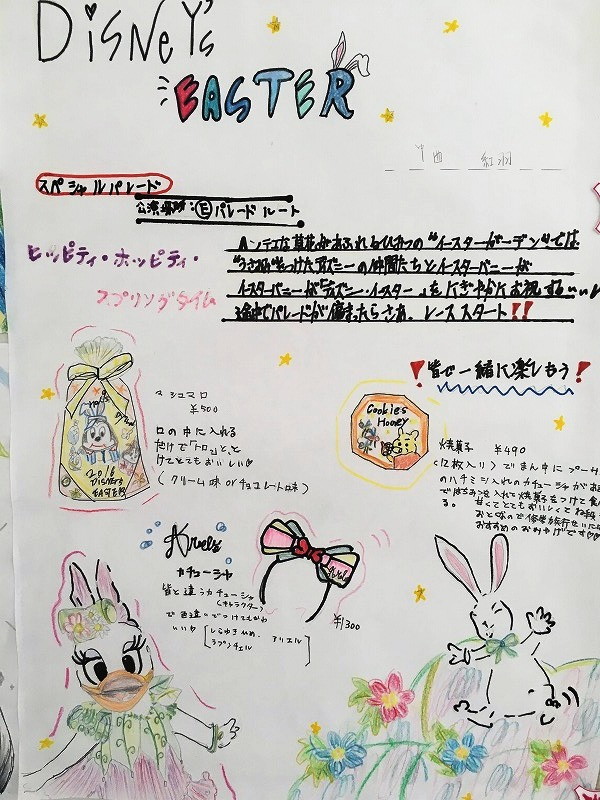 DiSNeY's
EASTER
紅羽
スペシャルパレード
公演場所:Eパレードルート
ヒッピティ・ホッピティ・
スプリングタイム
な草花があふれるひみつの"イースターガーデン"では
つけたディズニーの仲間たちとイースターバニーが
イースターバニーが「ディズニー・イースター」をにぎやかにお祝い
途中でパレードが停まったらさあ、レーススタート!!
!皆で一緒に楽しもう!
マシュマロ
¥500
口の中に入れる
だけで「トロっ」と
けてとてもおいしい♡
(クリーム味orチョコレート味)
2016
DISNEY'S
EASTER
Cookies
Honey
焼菓子 ¥490
(12枚入り)でまん中にプーさん
のハチミツ入れの
ではちみつを入れて焼菓子をつけて食べ
る。甘くてとてもおいしくて
おと
おすすめのおみやげです♡
カチューシャ
皆と違うカチューシャ
(キャラクター)
で色違いでつけてもかわ
いい♡
[しらゆきひめ、アリエル
ラプンツェル]
¥1300